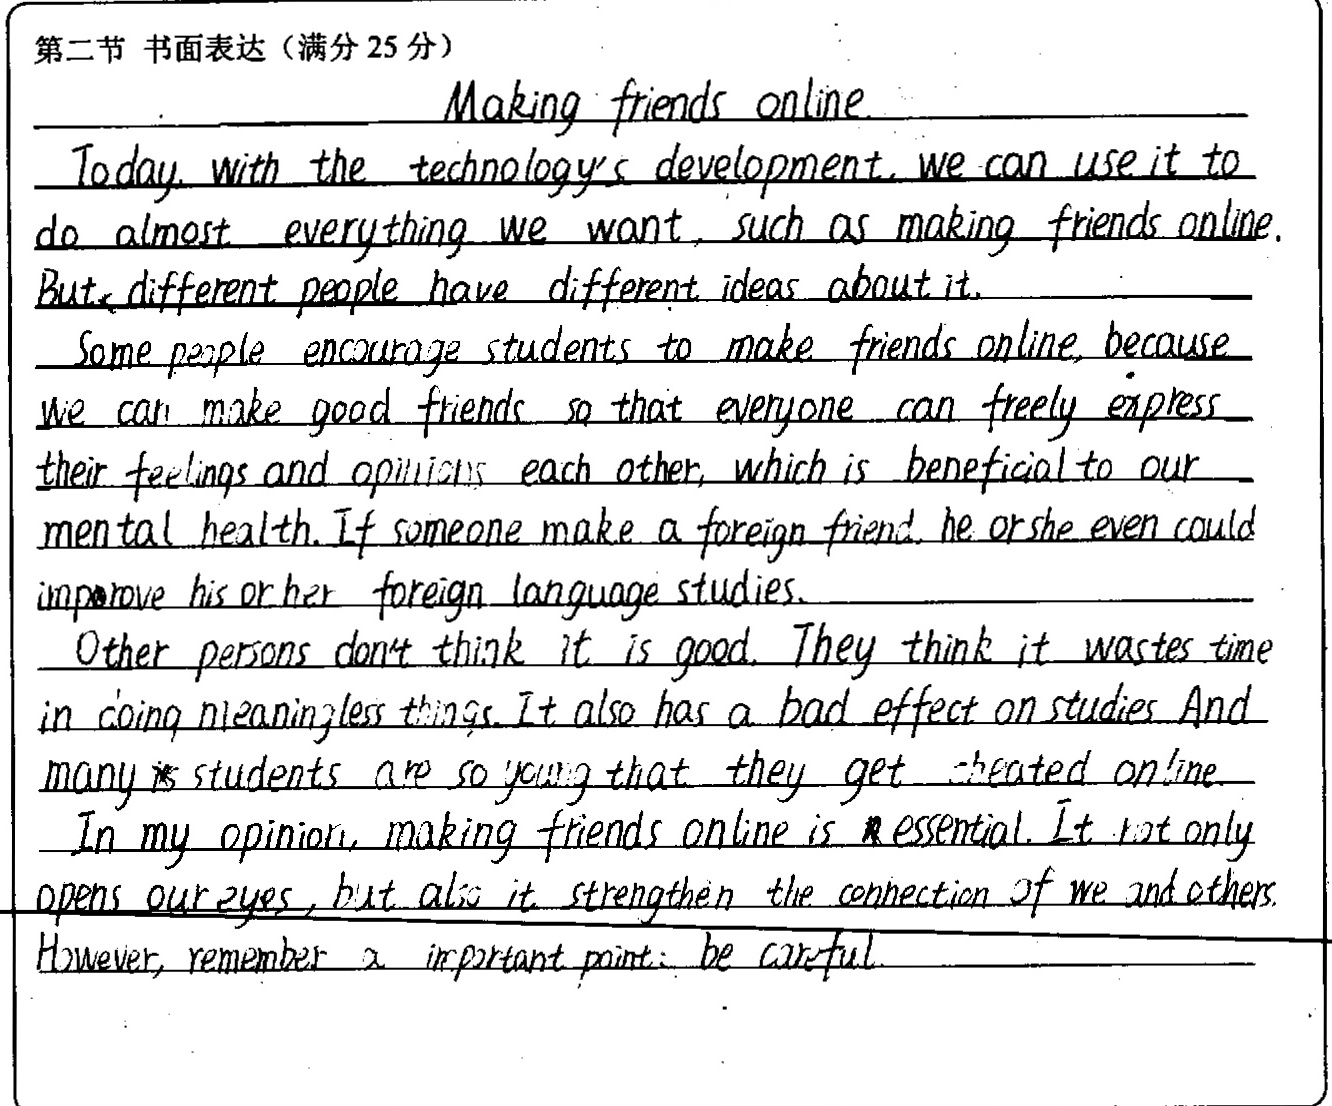 第二节 书面表达（满分 25 分）
Making friends online.
Today, with the technology's development, we can use it to
do almost everything we want, such as making friends online.
But, different people have different ideas about it.
Some people encourage students to make friends online, because
we can make good friends so that everyone can freely express
their feelings and opinions each other, which is beneficial to our
mental health. If someone make a foreign friend, he or she even could
improve his or her foreign language studies.
Other persons don't think it is good. They think it wastes time
in doing meaningless things. It also has a bad effect on studies. And
many students are so young that they get cheated online.
In my opinion, making friends online is essential. It not only
opens our eyes, but also it strengthen the connection of we and others.
However, remember a important point: be careful.